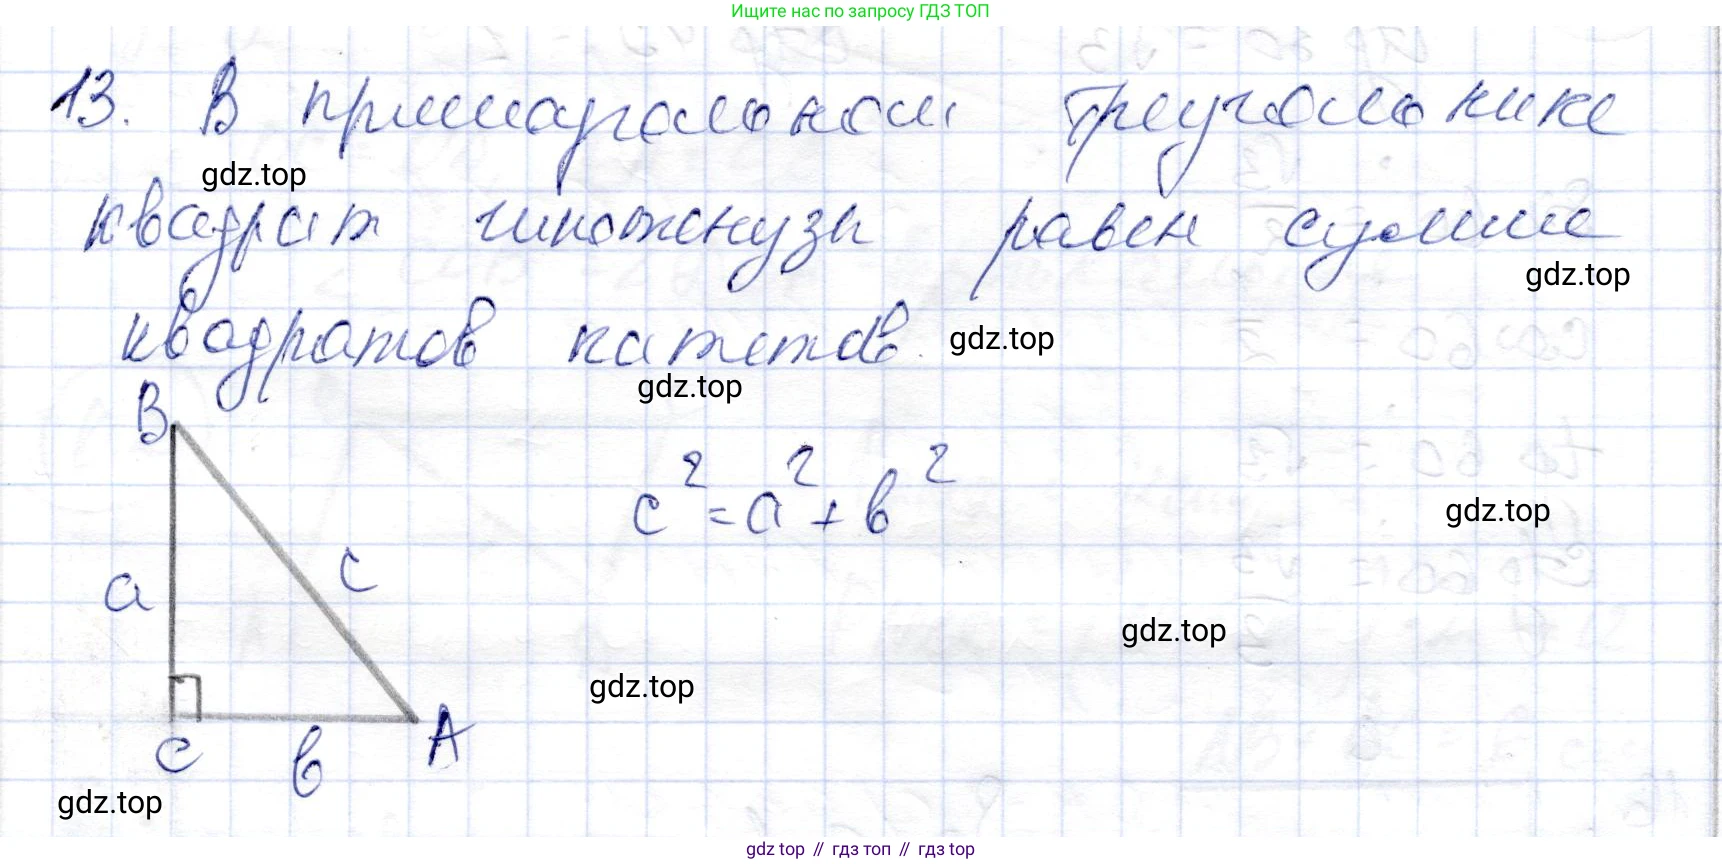 Ищите нас по запросу ГДЗ ТОП
13. В прямоугольном треугольнике
gdz.top
квадрат гипотенузы равен сумме
gdz.top
квадратов катетов.
gdz.top
gdz.top
B
c² = a² + b²
gdz.top
a
c
gdz.top
gdz.top
C
b
A
gdz.top
gdz top // гдз топ // гдз top